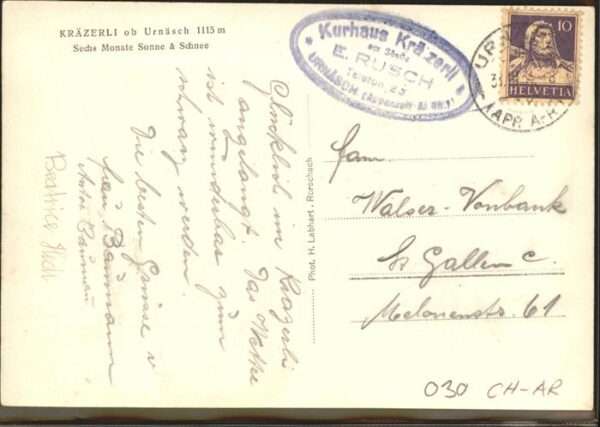 KRÄZERLI ob Urnäsch 1115 m
Sechs Monate Sonne & Schnee
Kurhaus Kräzerli
am Säntis
E. RUSCH
Telefon 23
URNÄSCH
10
HELVETIA
(APP. A-RH
Glücklich im Kräzerli
angelangt. Das Wetter
ist wunderbar zum
schwarz werden.
Die besten Grüsse v.
Baumann
Beatrice
Phot. H. Labhart - Rorschach
Fam.
Walser-Vonbank
St. Gallen C.
Melonenstr. 61
030 CH-AR